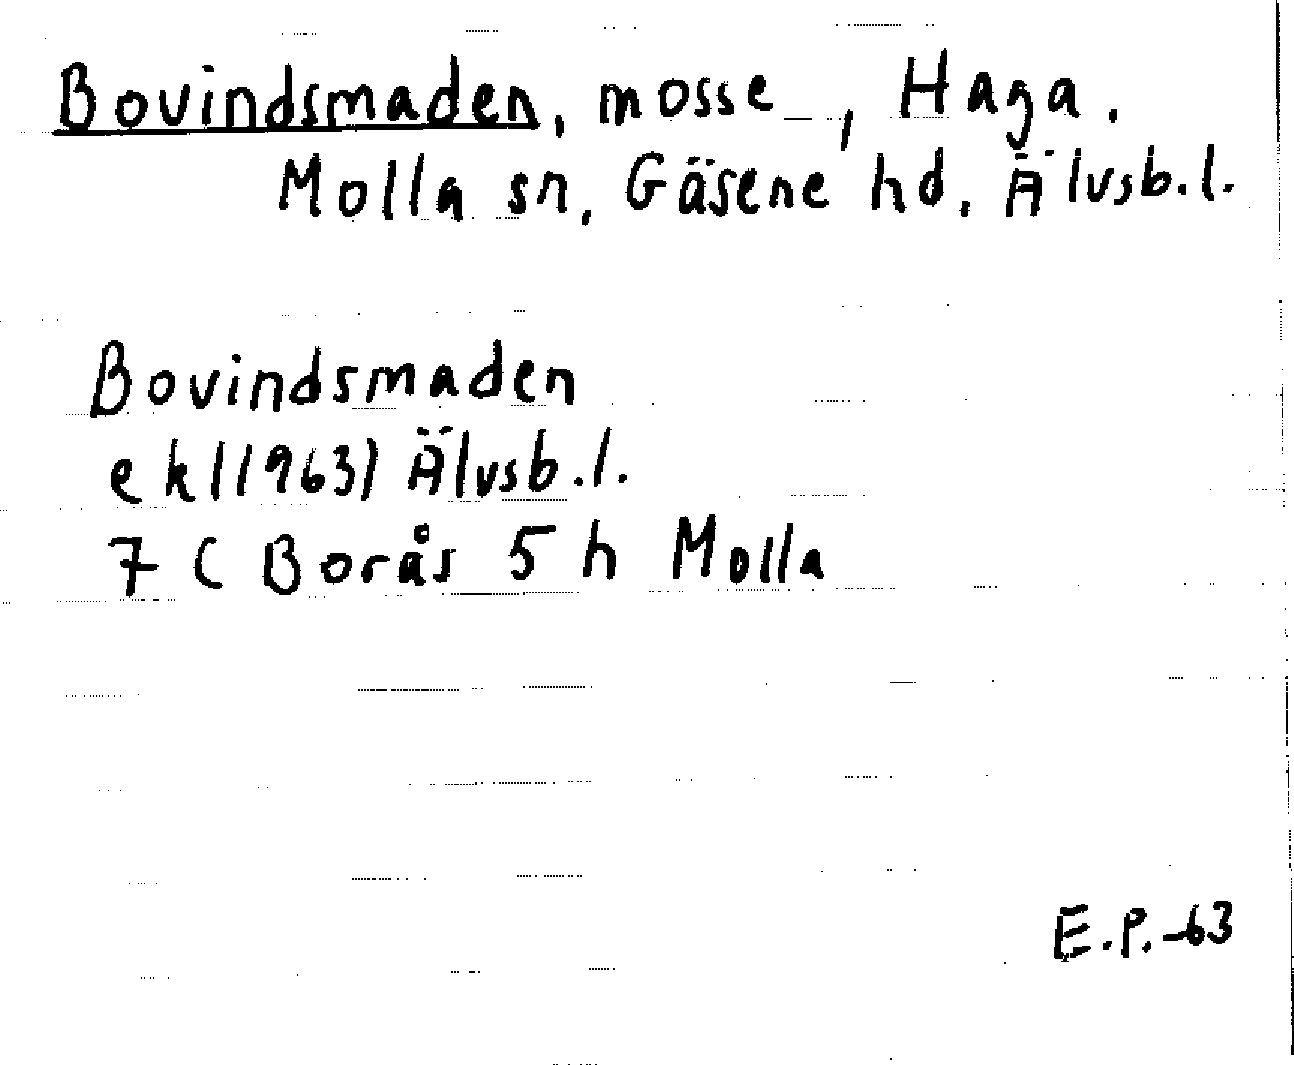 Bovindsmaden, mosse, Haga.
Molla sn, Gäsene hd, Älvsb.l.
Bovindsmaden
ek (1963) Älvsb.l.
7 C Borås 5 h Molla
E.P.-63